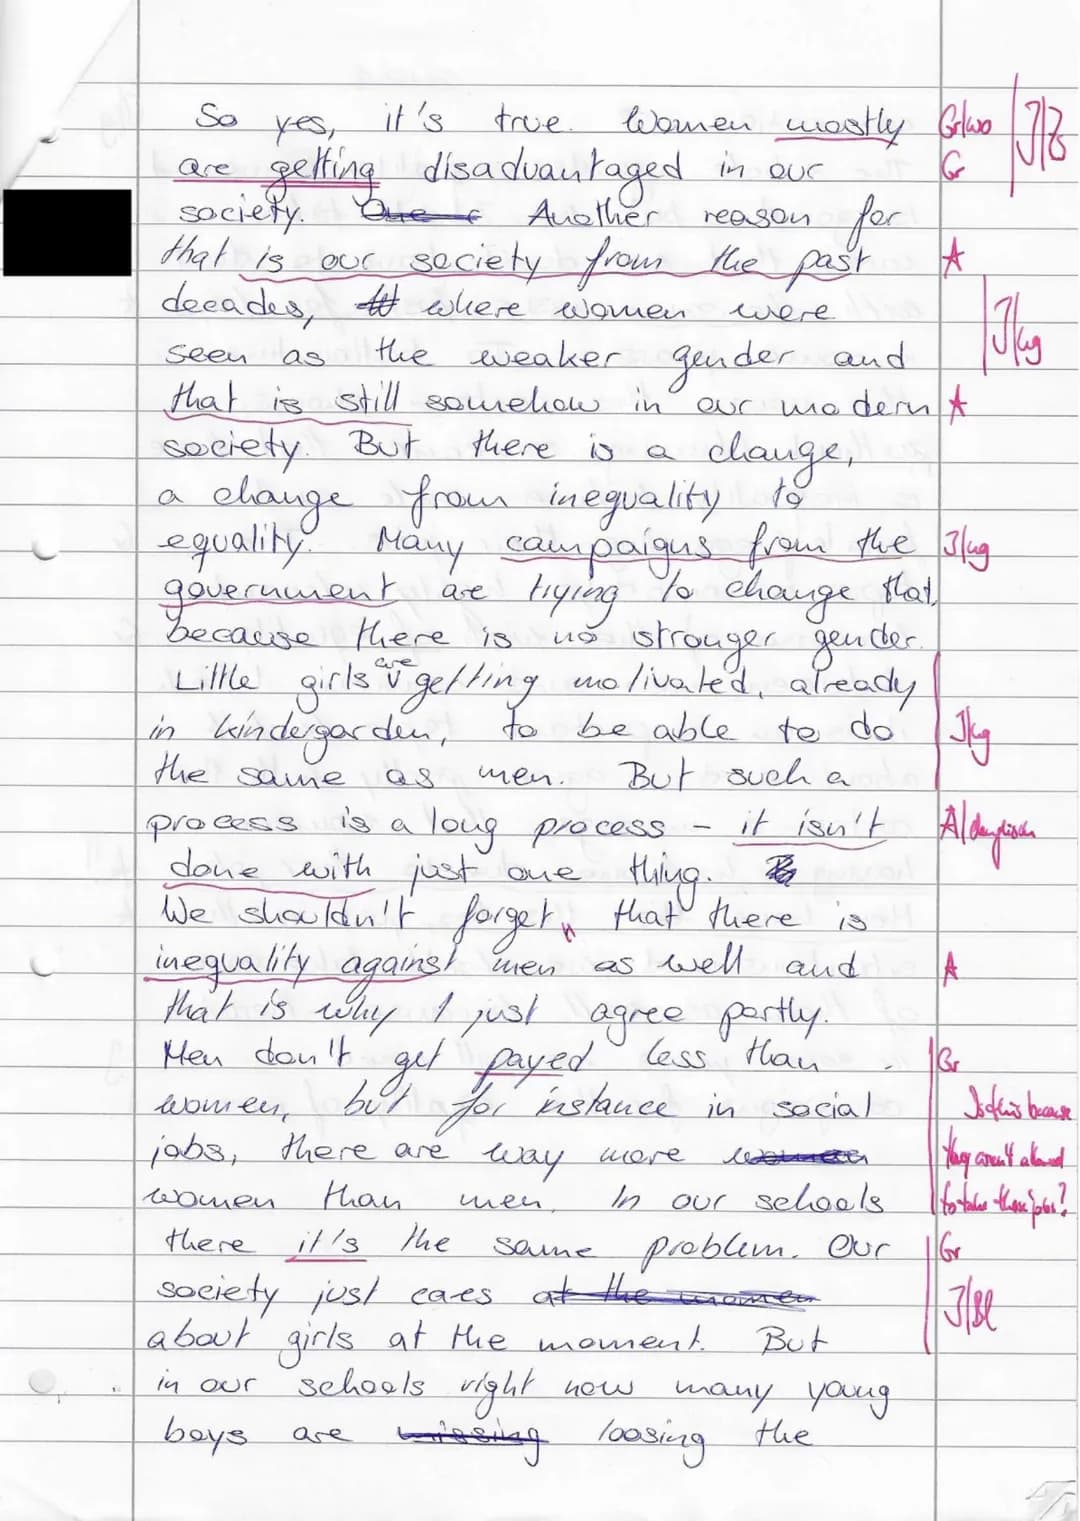 So yes, it's true. Women mostly Gr/wo J/Z
are getting disadvantaged in our Gr
society. Another reason for
that is our society from the past A
decades, where women were
seen as the weaker gender and J/ug
that is still somehow in our modern A
society. But there is a change,
a change from inequality to
equality. Many campaigns from the J/ug
government are trying to change that,
because there is no stronger gender.
Little girls are getting motivated, already
in kindergarden, to be able to do J/ug
the same as men. But such a
process is a long process – it isn't A/denglisch
done with just one thing.
We shouldn't forget, that there is
inequality against men as well and A
that is why I just agree partly.
Men don't get payed less than Gr
women, but for instance in social Is this because
jobs, there are way more they aren't allowed
women than men. In our schools to take those jobs?
there it's the same problem. Our Gr
society just cares at the momen J/Bl
about girls at the moment. But
in our schools right now many young
boys are missing loosing the